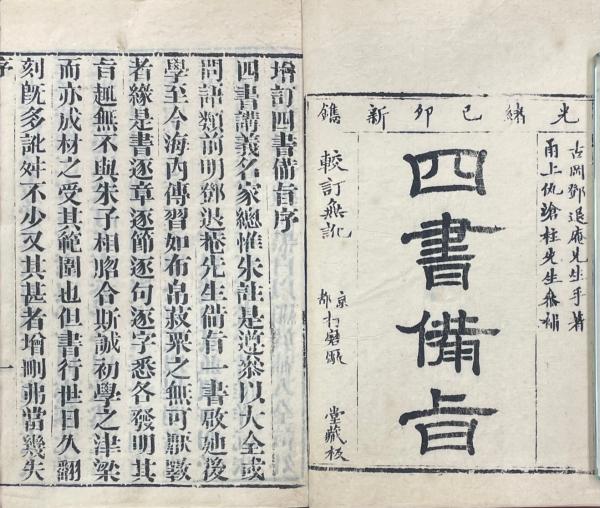 光緒己卯新鐫
古岡鄧退庵先生手著
甬上仇滄柱先生參補
四書備旨
較訂無訛
京都
堂藏板
增訂四書備旨序
四書講義名家總惟朱註是遵叅以大全或
問語類前明鄧退菴先生備旨一書啟廸後
學至今海內傳習如布帛菽粟之無可厭斁
者緣是書逐章逐節逐句逐字悉各發明其
旨趣無不與朱子相脗合斯誠初學之津梁
而亦成材之受其範圍也但書行世日久翻
刻旣多訛舛不少又其甚者增刪弗當幾失
序
一